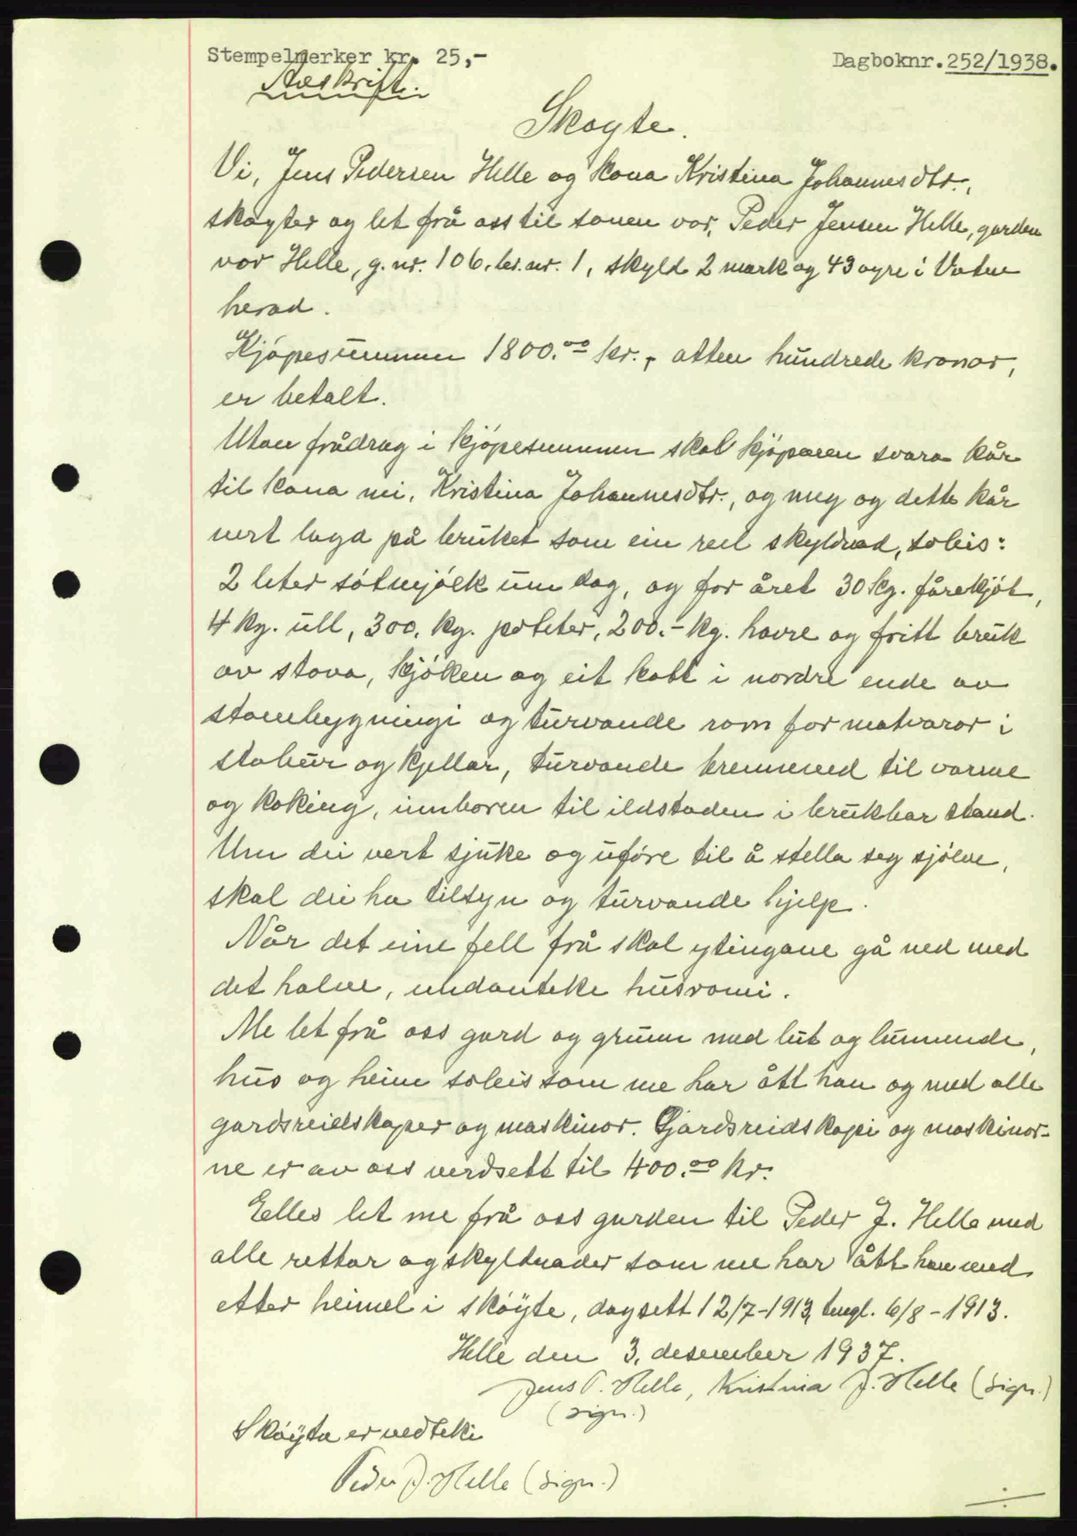 Stempelmerker kr. 25,-
Dagboknr. 252/1938.
Avskrift.
Skøyte.
Vi, Jens Pedersen Helle og kona Kristina Johannesdtr.,
skøyter og let frå oss til sonen vor, Peder Jensen Helle, garden
vor Helle, g.nr. 106, br.nr. 1, skyld 2 mark og 43 øyre i Vatne
herad.
Kjøpesummen 1800.00 kr., atten hundrede kronor,
er betalt.
Utan frådrag i kjøpesummen skal kjøparen svara kår
til kona mi, Kristina Johannesdtr., og meg og dette kår
vert lagd på bruket som ein reel skyldnad, soleis:
2 liter søtmjølk um dag, og for året 30 kg. fårekjøt,
4 kg. ull, 300, kg. poteter, 200.- kg. havre og fritt bruk
av stova, kjøken og eit kott i nordre ende av
stovebygningi og turvande rom for matvaror i
stabur og kjellar, turvande brenneved til varme
og koking, innboren til ildstaden i brukbar stand.
Um dei vert sjuke og uføre til å stella seg sjølve,
skal dei ha tilsyn og turvande hjelp.
Når det eine fell frå skal ytingane gå ned med
det halve, undanteke husromi.
Me let frå oss gard og grunn med lut og lunnende,
hus og heim soleis som me har ått han og med alle
gardsreidskaper og maskinor. Gardsreidskapi og maskinor-
ne er av oss verdsett til 400.00 kr.
Elles let me frå oss garden til Peder J. Helle med
alle rettar og skyldnader som me har ått han med
etter heimel i skøyte, dagsett 12/7-1913, tingl. 6/8-1913.
Helle den 3. desember 1937.
Jens P. Helle, Kristina J. Helle (sign.)
(sign.)
Skøyta er vedteki
Peder J. Helle (sign.)